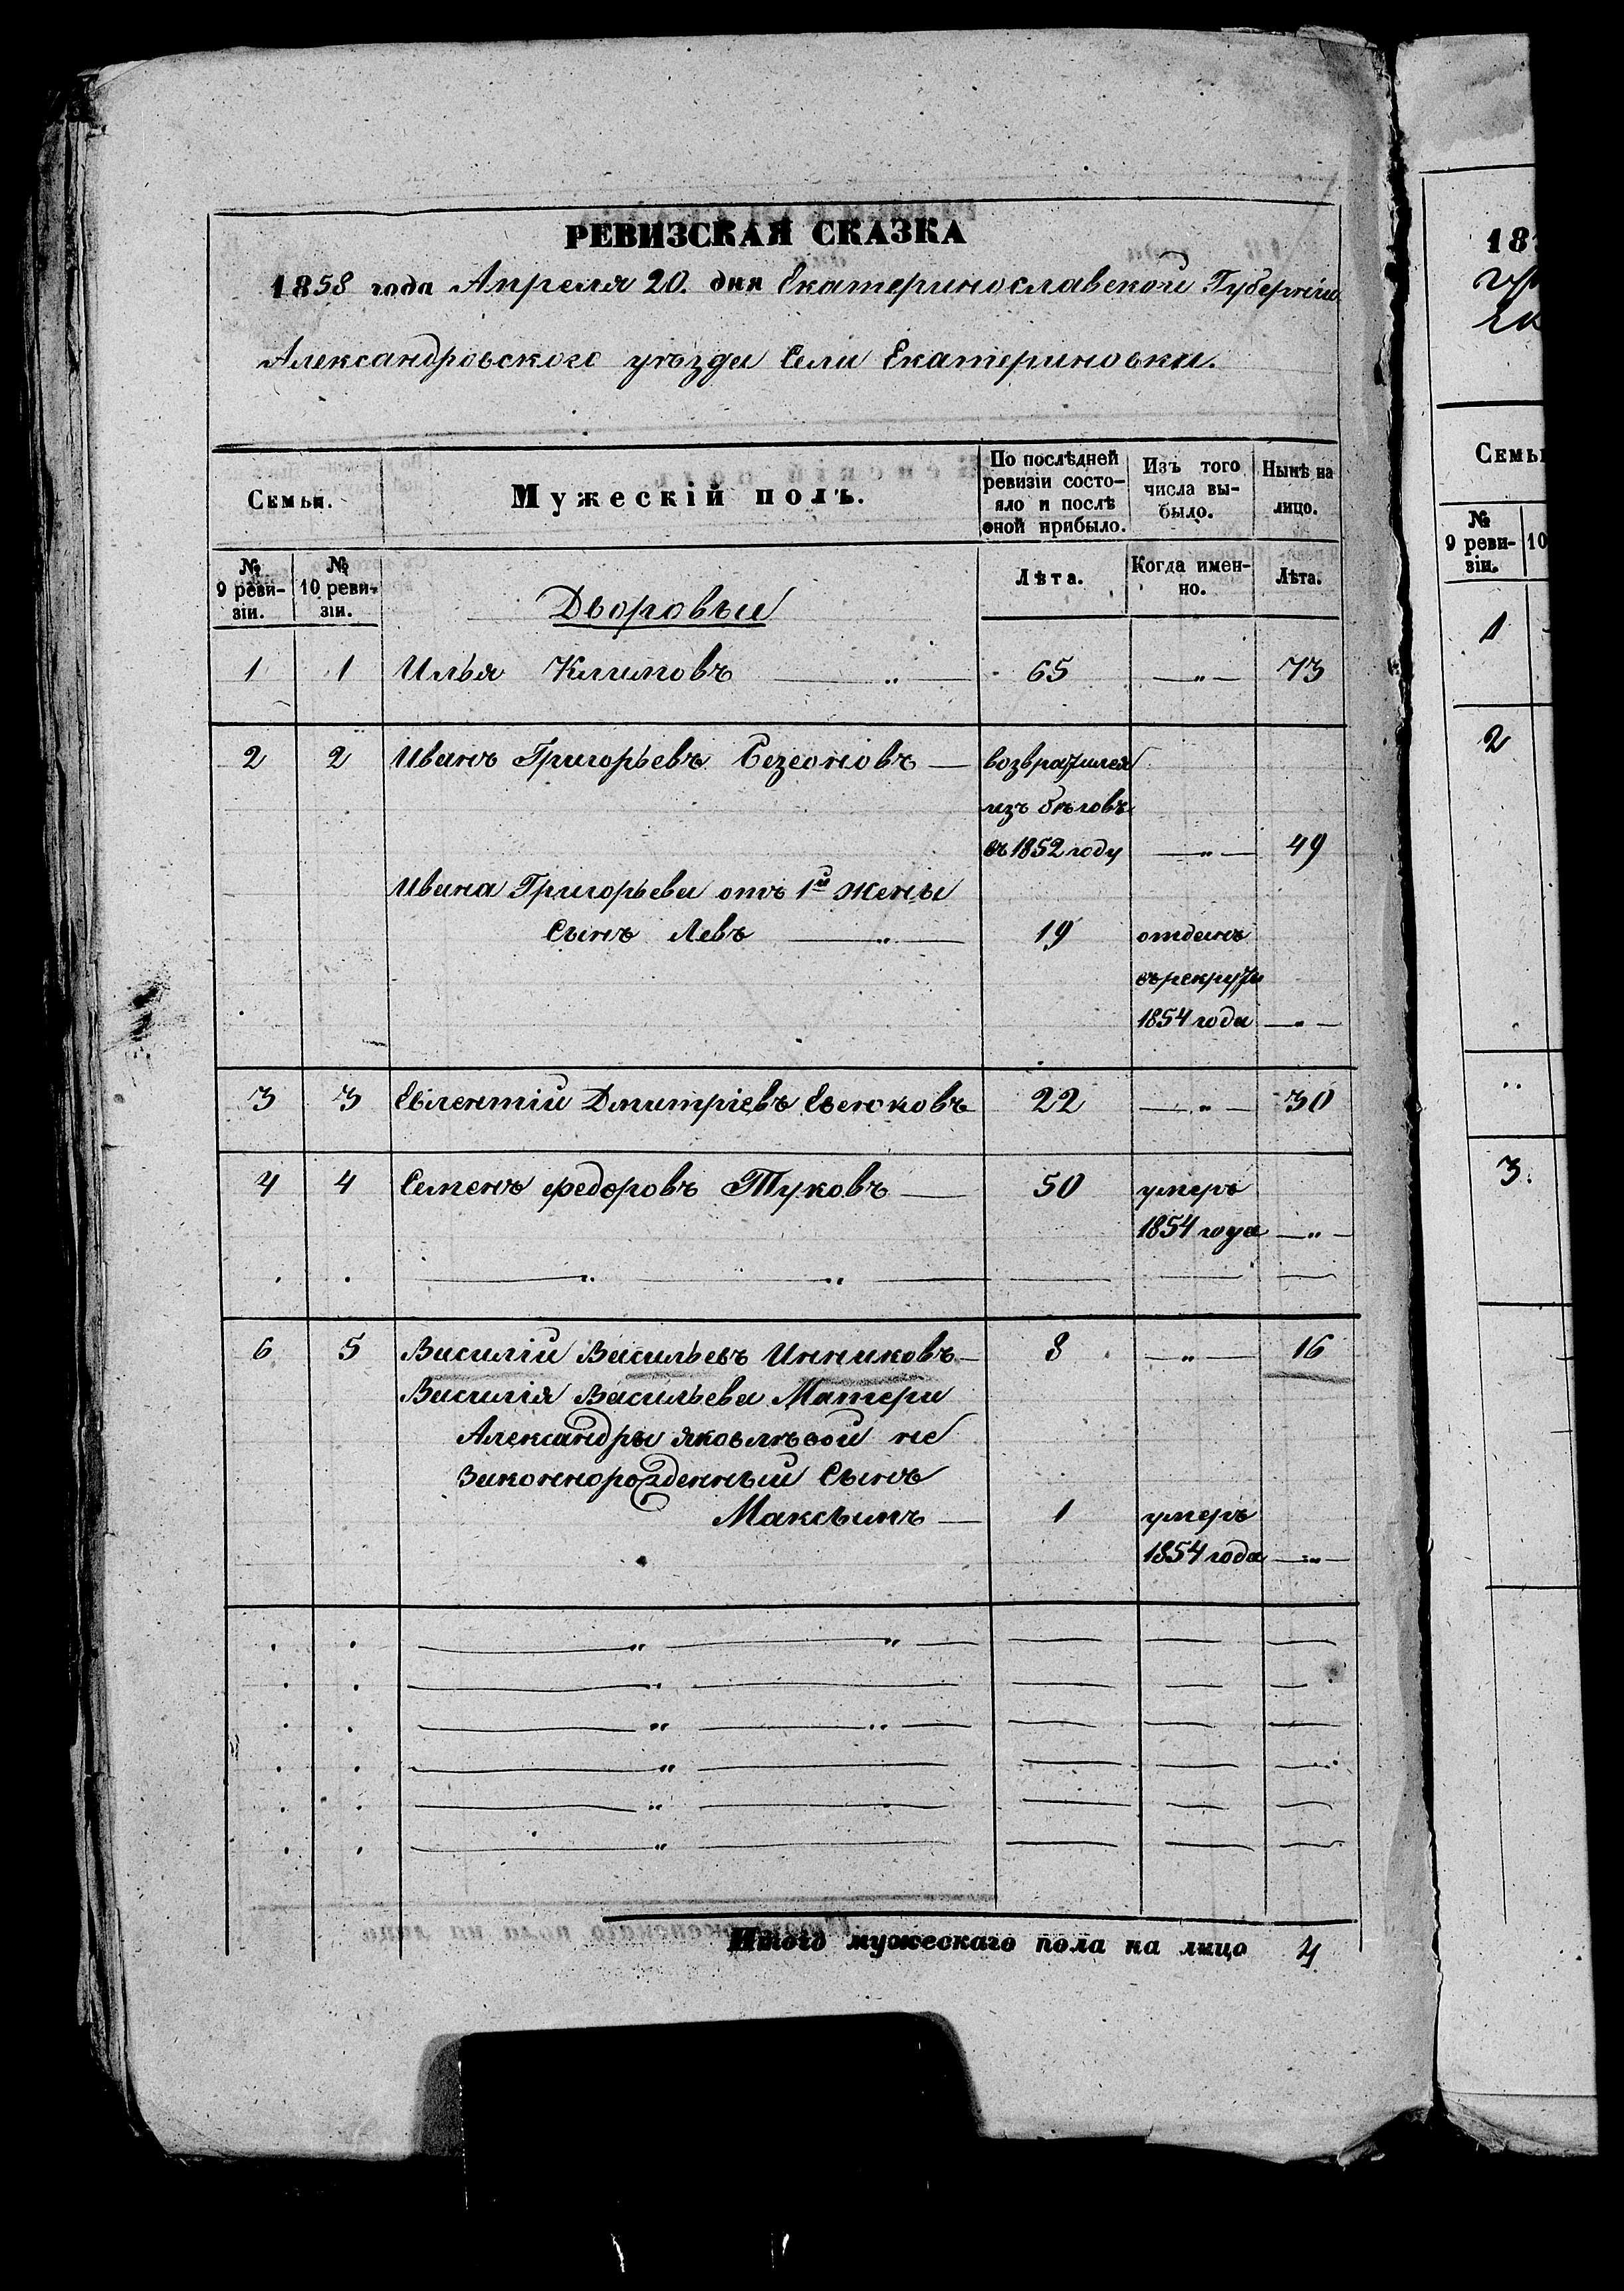 РЕВИЗСКАЯ СКАЗКА
1858 года Апреля 20. дня Екатеринославской Губерніи
Александровского уѣзда Села Екатериновки.
Семьи.
Мужескій полъ.
По послѣдней ревизіи состо-яло и послѣ оной прибыло.
Изъ того числа вы-было.
Нынѣ на лицо.
№ 9 реви-зіи.
№ 10 реви-зіи.
Лѣта.
Когда имен-но.
Лѣта.
Дворовыи
1 1 Илья Климовъ 65 —„— 73
2 2 Иванъ Григорьевъ Сезеоновъ — возвратился
изъ бѣговъ
въ 1852 году —„— 49
Ивана Григорьева отъ 1й жены
Сынъ Левъ —„— 19 отданъ
въ рекруты
1854 года —„—
3 3 Дмитріевъ Евсюковъ 22 —„— 30
4 4 Семенъ Федоровъ Туковъ — 50 умеръ
1854 года —„—
6 5 Василій Васильевъ Инниковъ — 8 —„— 16
Василія Васильева Матери
Александры Яковлѣвой не
Законнорожденный Сынъ
Максымъ — 1 умеръ
1854 года —„—
Итого мужескаго пола на лицо 4
18
Семьи
№
9 реви-
зіи.
10
1
2
3.